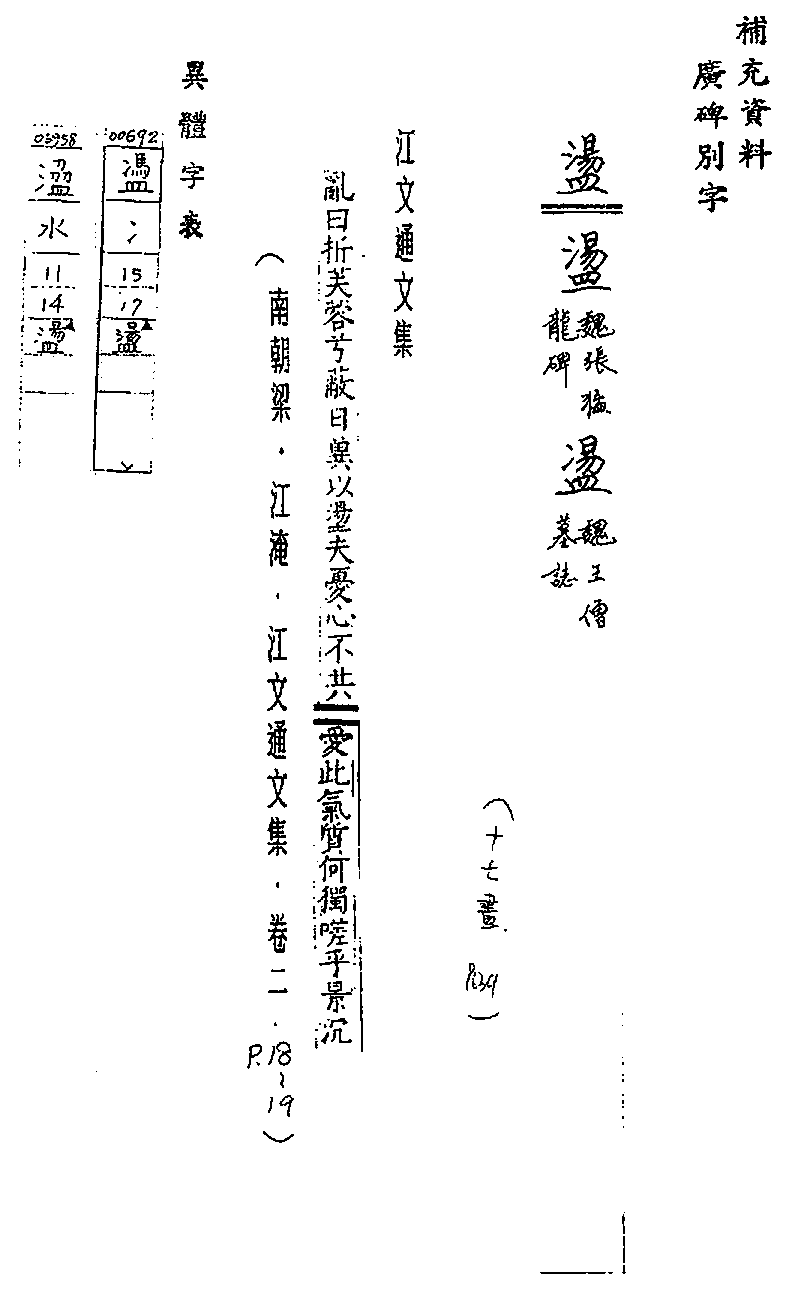 補充資料
廣碑別字
盪 盪 魏張猛
龍碑
盪 魏王僧
墓誌
(十七畫. P.139)
江文通文集
亂曰折芙蓉兮蔽日冀以盪夫憂心不共愛此氣質何獨嗟乎景沉
(南朝梁.江淹.江文通文集.卷二.P.18~19)
異體字表
00692
冫
15
17
盪
03958
水
11
14
盪